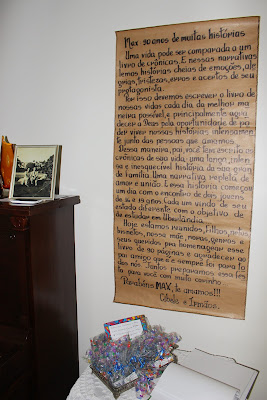 Max 90 anos de muitas histórias
Uma vida pode ser comparada a um
livro de crônicas. E nessas narrativas
lemos histórias cheias de emoções, ale
grias, tristezas, erros e acertos de seu
protagonista.
Por isso devemos escrever o livro de
nossas vidas cada dia da melhor ma
neira possível, e principalmente agra
decer a Deus pela oportunidade de po
der viver nossas histórias intensamen
te junto das pessoas que amamos.
Dessa maneira, pai, você tece diária as
crônicas de sua vida: uma longa, inten
sa e inesquecível história da sua gran
de família. Uma narrativa repleta de
amor e união. E essa história começou
um dia com o encontro de dois jovens
de 16 e 19 anos. Cada um vindo de seu
estado diferente com o objetivo de
de estudar em Uberlândia.
Hoje estamos reunidos, filhos, netos,
bisnetos, nosso mãe, noras, genros e
seus queridos pra homenagear esse
livro de 90 páginas e agradecer ao
pai amigo que é e sempre foi para to
dos nós. Juntos preparamos essa fes
ta para você com muito carinho.
Parabéns MAX, te amamos!!!
Cibele e Irmãos.